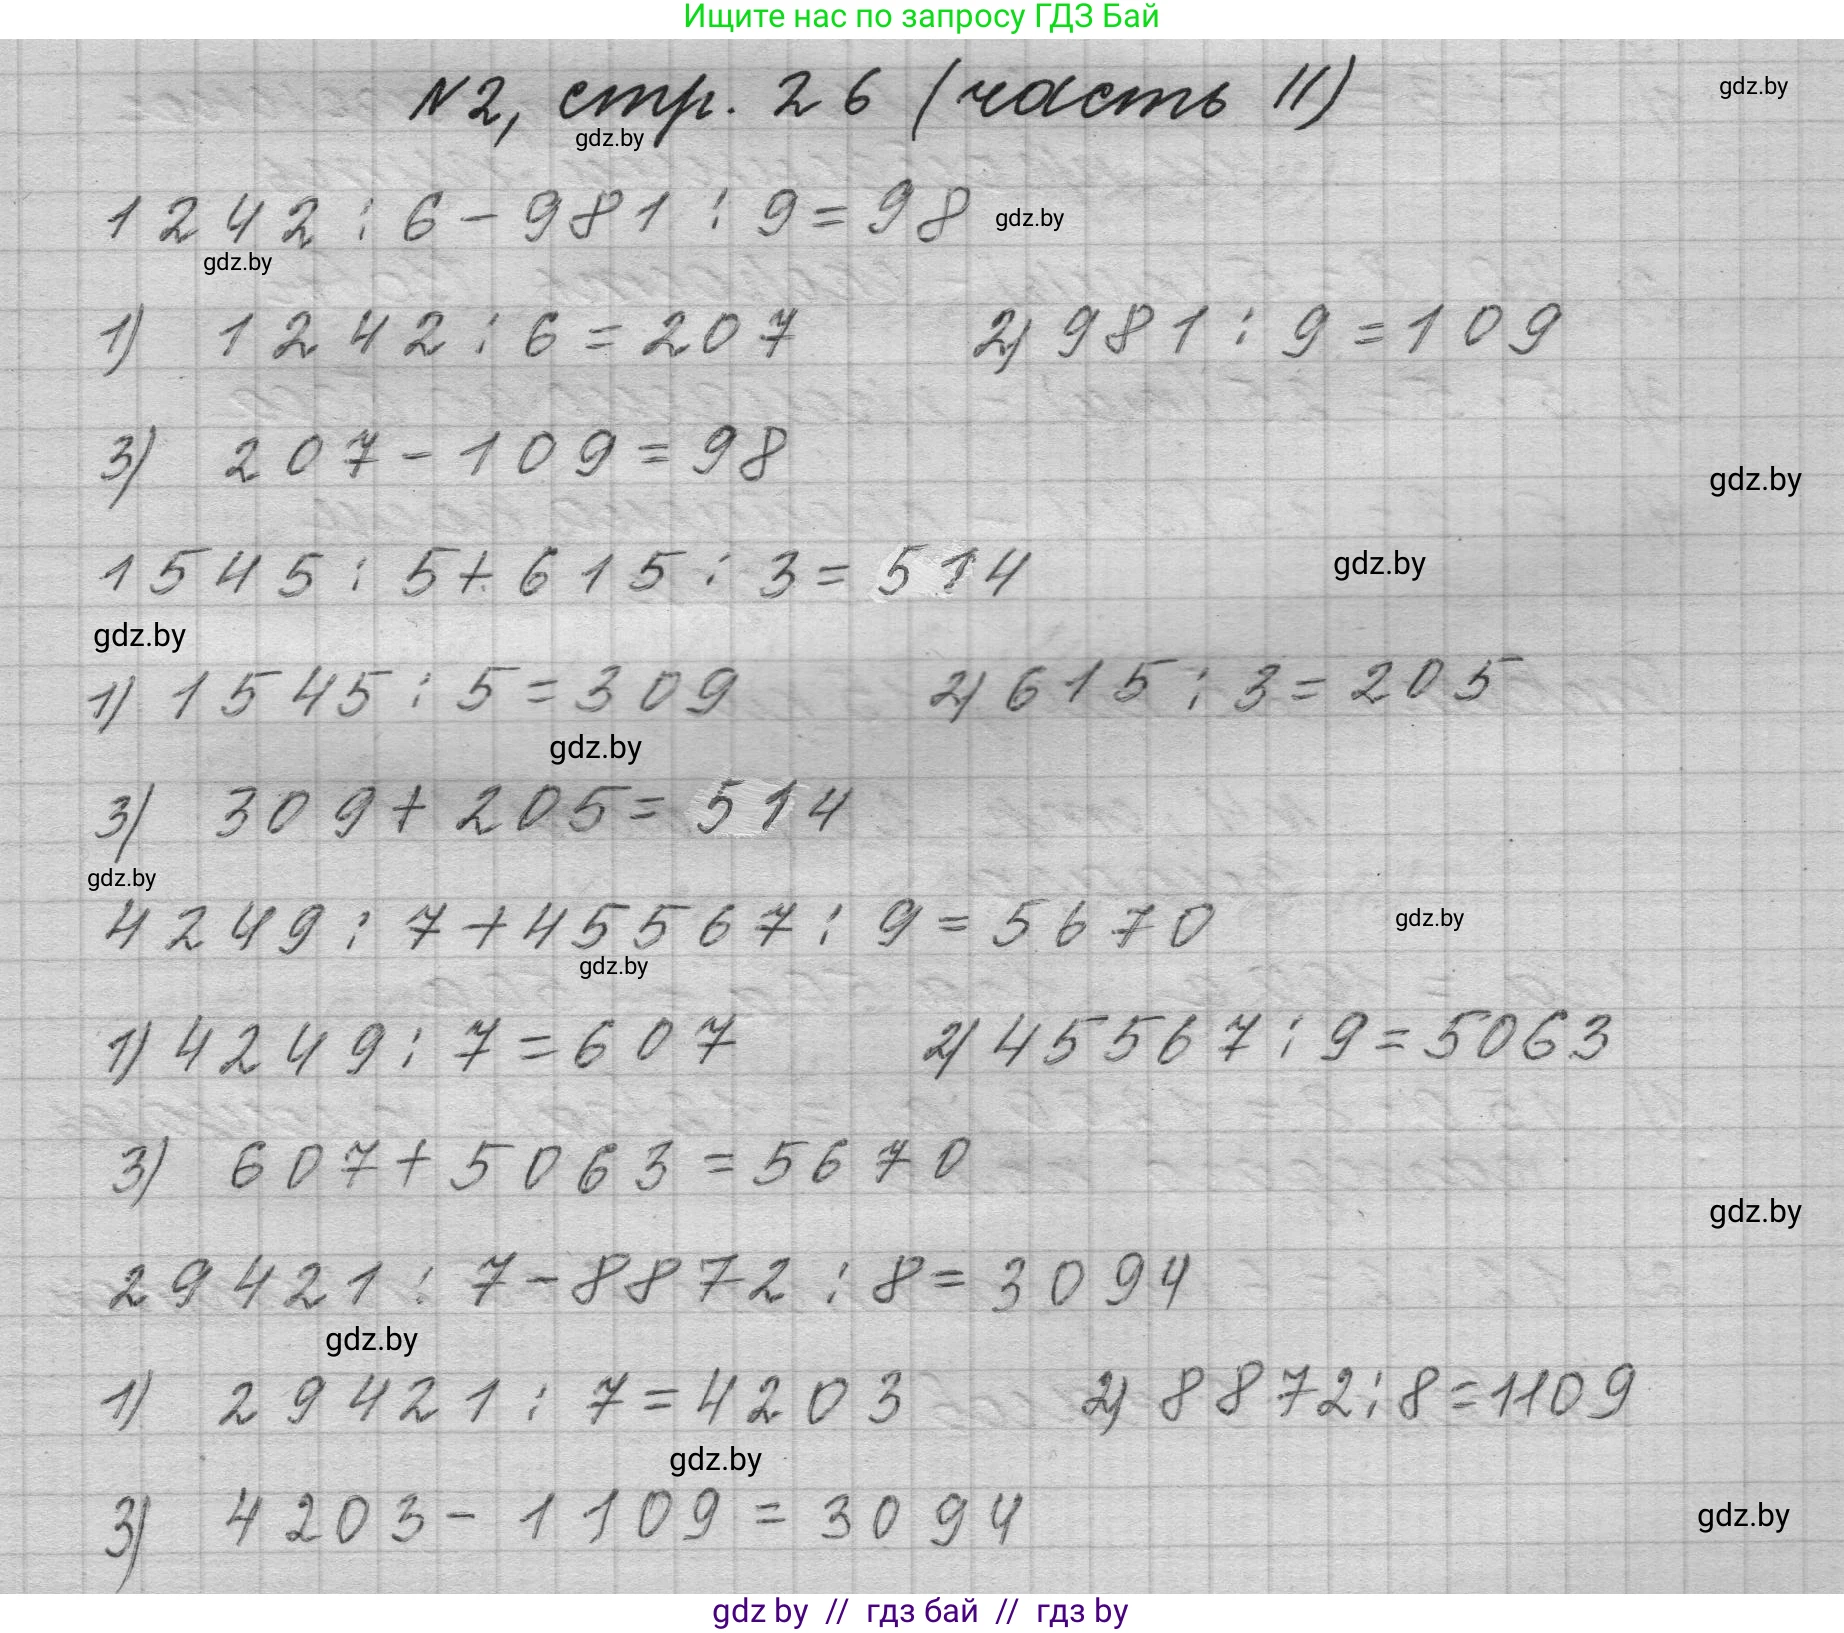 Ищите нас по запросу ГДЗ Бай
N2, стр. 26 (часть II)
gdz.by
gdz.by
1242 : 6 - 981 : 9 = 98
gdz.by
gdz.by
1) 1242 : 6 = 207 2) 981 : 9 = 109
3) 207 - 109 = 98
gdz.by
1545 : 5 + 615 : 3 = 514
gdz.by
gdz.by
1) 1545 : 5 = 309 2) 615 : 3 = 205
gdz.by
3) 309 + 205 = 514
gdz.by
4249 : 7 + 45567 : 9 = 5670
gdz.by
gdz.by
1) 4249 : 7 = 607 2) 45567 : 9 = 5063
3) 607 + 5063 = 5670
gdz.by
29421 : 7 - 8872 : 8 = 3094
gdz.by
1) 29421 : 7 = 4203 2) 8872 : 8 = 1109
gdz.by
3) 4203 - 1109 = 3094
gdz.by
gdz by // гдз бай // гдз by